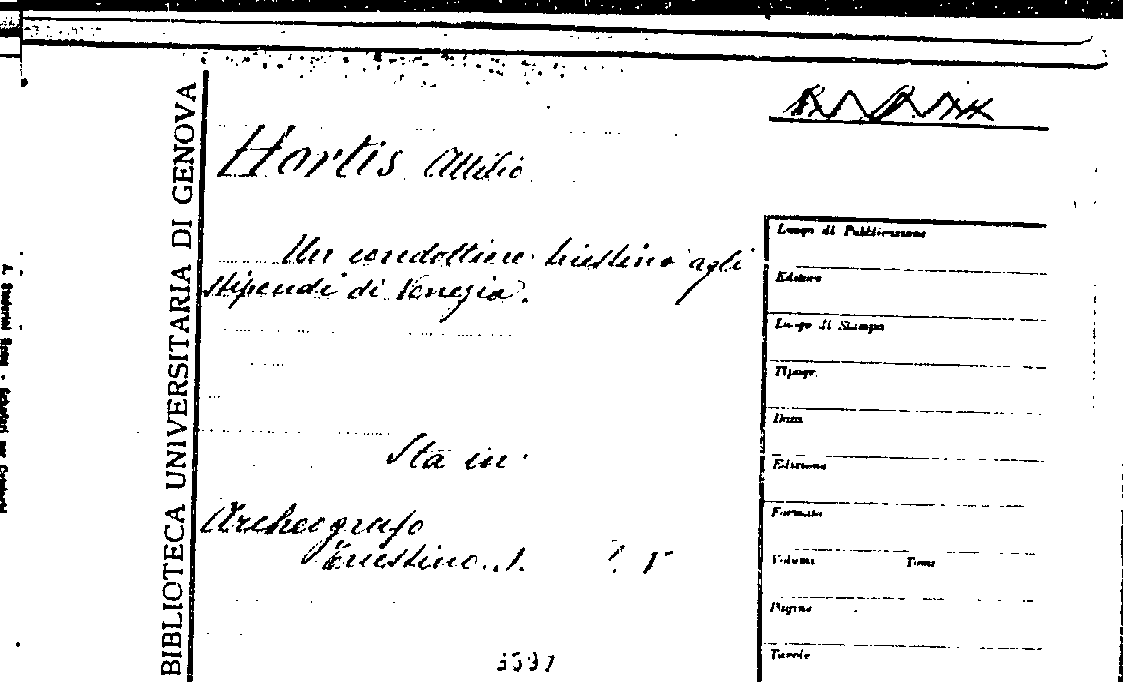 BIBLIOTECA UNIVERSITARIA DI GENOVA
Hortis Attilio
Un condottiero triestino agli
stipendi di Venezia.
Sta in
Archeografo
Triestino.
Luogo di Pubblicazione
Editore
Luogo di Stampa
Tipogr.
Data
Edizione
Formato
Volumi Tomi
Pagine
Tavole